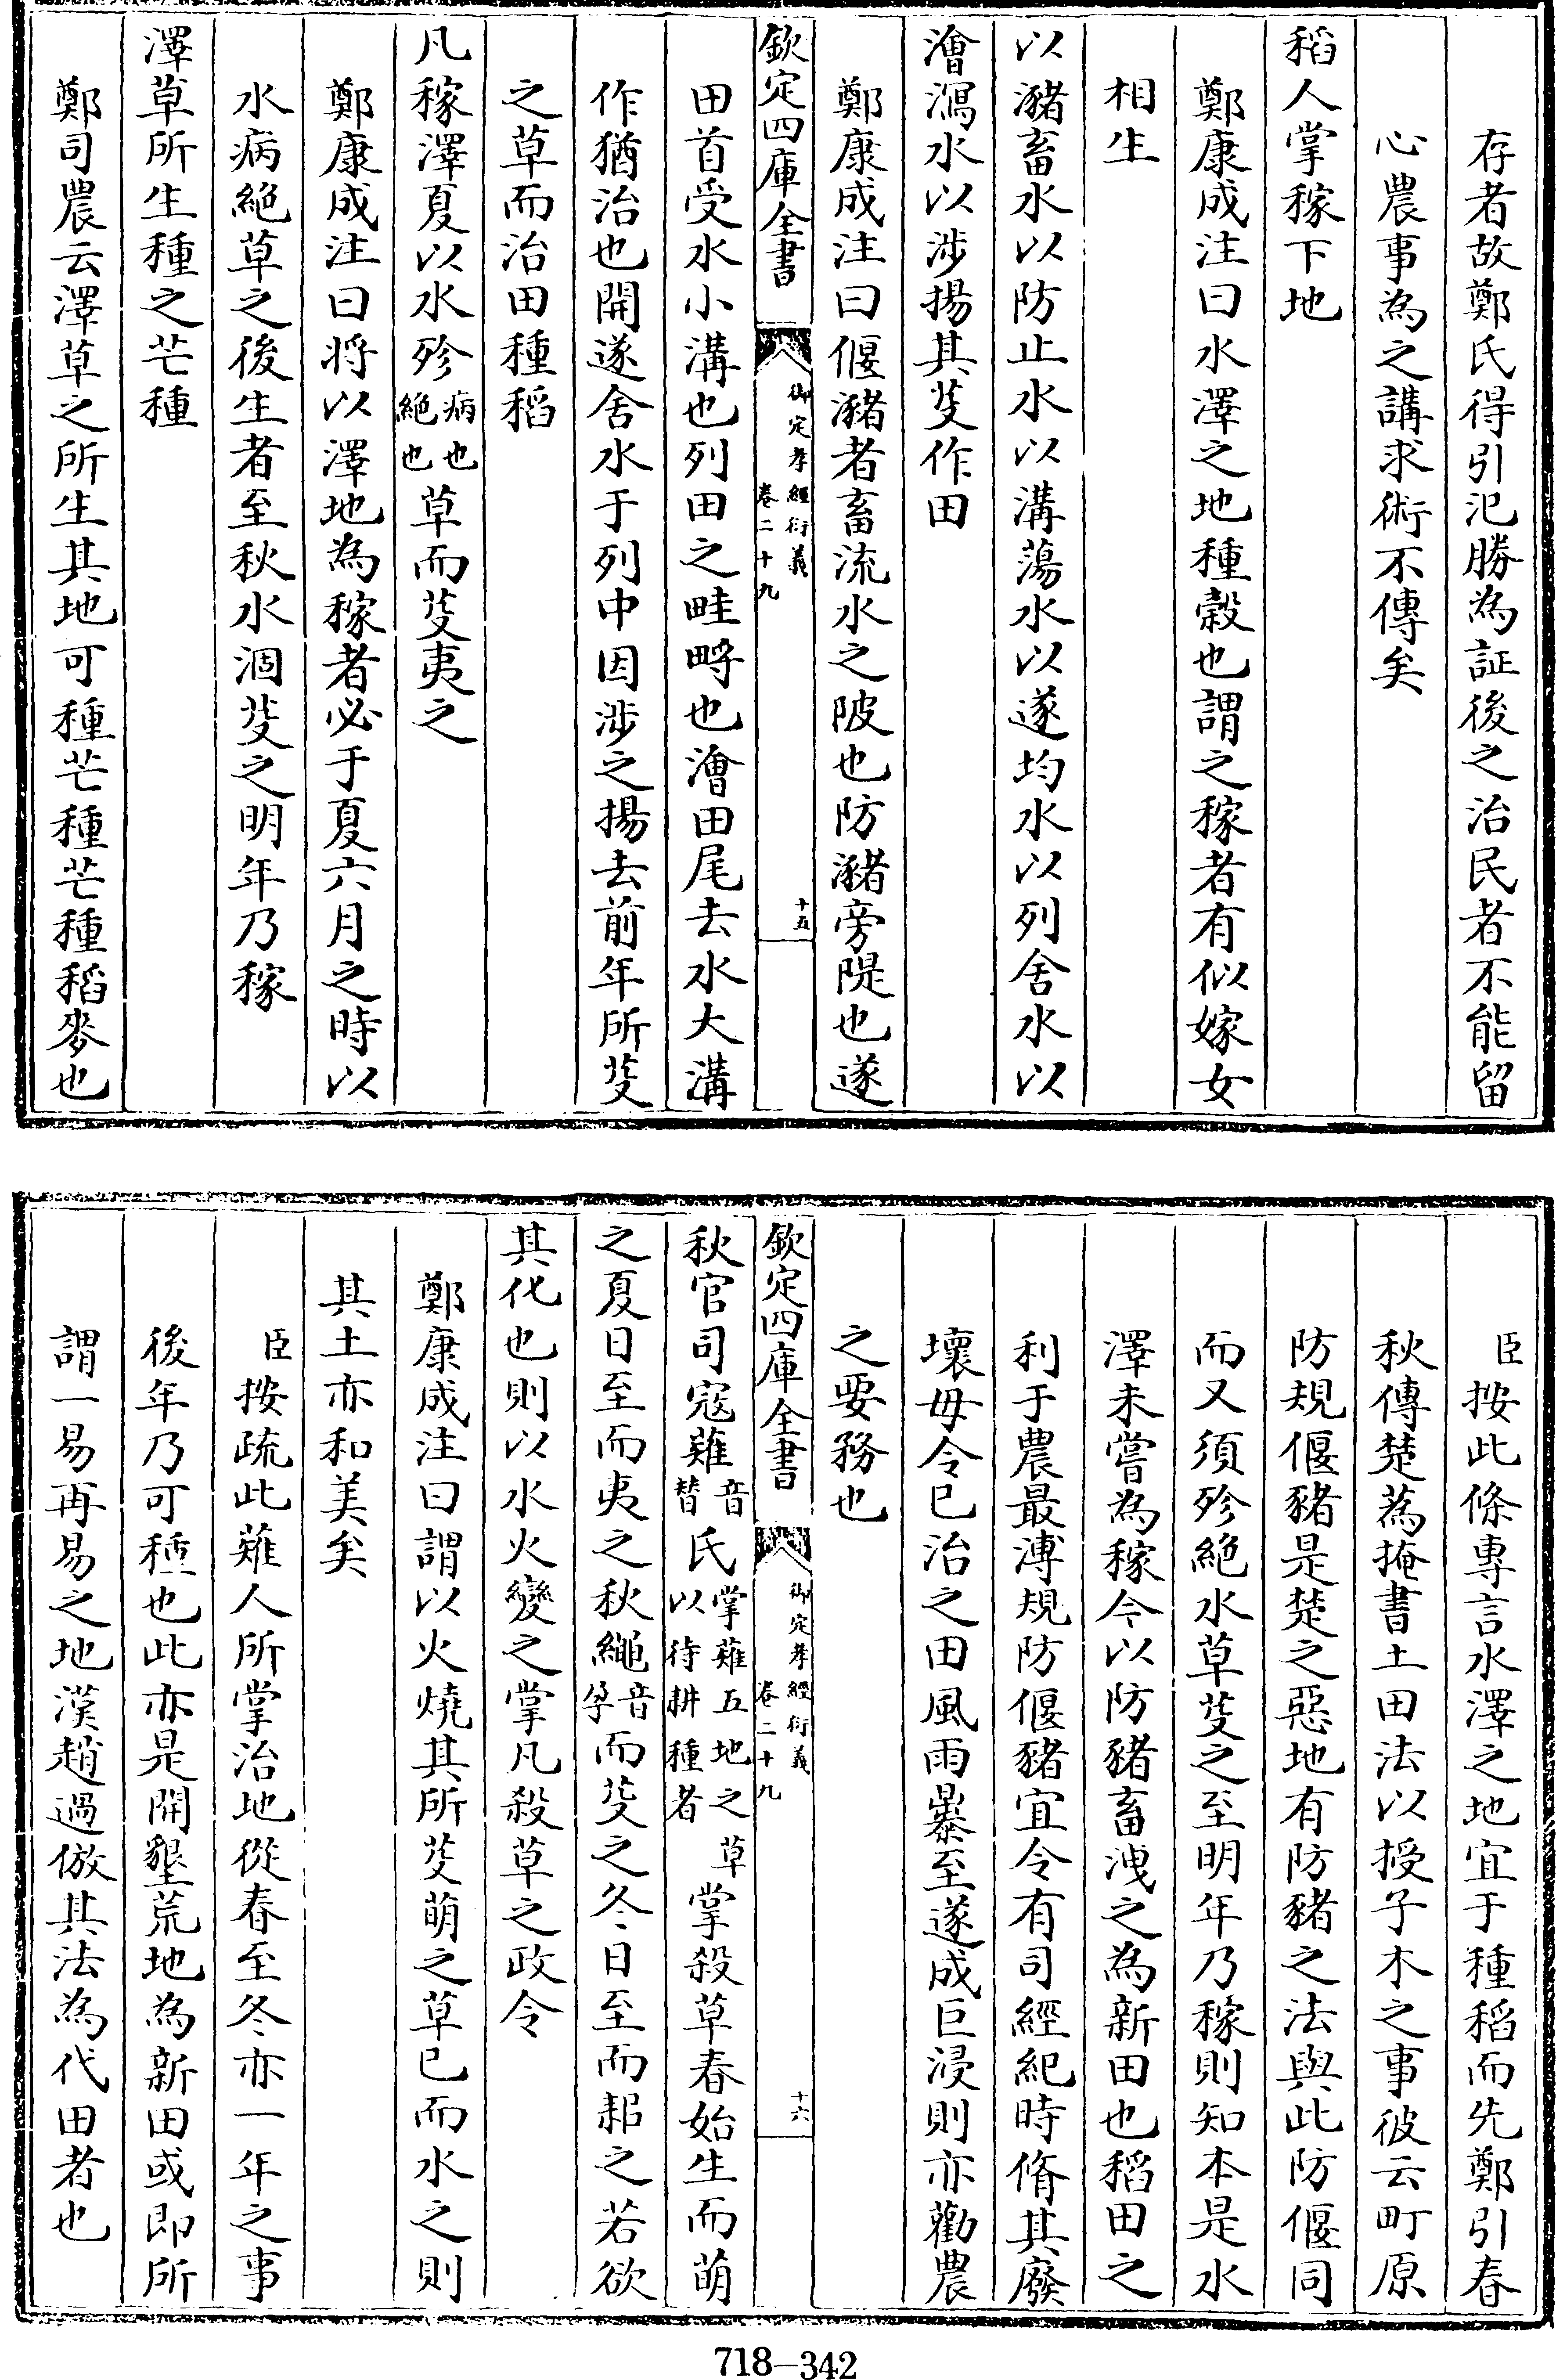 存者故鄭氏得引氾勝為証後之治民者不能留
心農事為之講求術不傳矣
稻人掌稼下地
鄭康成注曰水澤之地種穀也謂之稼者有似嫁女
相生
以瀦畜水以防止水以溝蕩水以遂均水以列舍水以
澮瀉水以涉揚其芟作田
鄭康成注曰偃瀦者畜流水之陂也防瀦旁隄也遂
欽定四庫全書
御定孝經衍義
卷二十九
十五
田首受水小溝也列田之畦畤也澮田尾去水大溝
作猶治也開遂舍水于列中因涉之揚去前年所芟
之草而治田種稻
凡稼澤夏以水殄病也絕也草而芟夷之
鄭康成注曰將以澤地為稼者必于夏六月之時以
水病絕草之後生者至秋水涸芟之明年乃稼
澤草所生種之芒種
鄭司農云澤草之所生其地可種芒種芒種稻麥也
臣按此條專言水澤之地宜于種稻而先鄭引春
秋傳楚蒍掩書土田法以授子木之事彼云町原
防規偃豬是楚之惡地有防豬之法與此防偃同
而又須殄絕水草芟之至明年乃稼則知本是水
澤未嘗為稼今以防豬畜洩之為新田也稻田之
利于農最溥規防偃豬宜令有司經紀時脩其廢
壞毋令已治之田風雨暴至遂成巨浸則亦勸農
之要務也
欽定四庫全書
御定孝經衍義
卷二十九
十六
秋官司寇薙音替氏掌薙五地之草以待耕種者掌殺草春始生而萌
之夏日至而夷之秋繩音孕而芟之冬日至而耜之若欲
其化也則以水火變之掌凡殺草之政令
鄭康成注曰謂以火燒其所芟萌之草已而水之則
其土亦和美矣
臣按疏此薙人所掌治地從春至冬亦一年之事
後年乃可種也此亦是開墾荒地為新田或即所
謂一易再易之地漢趙過倣其法為代田者也
718-342